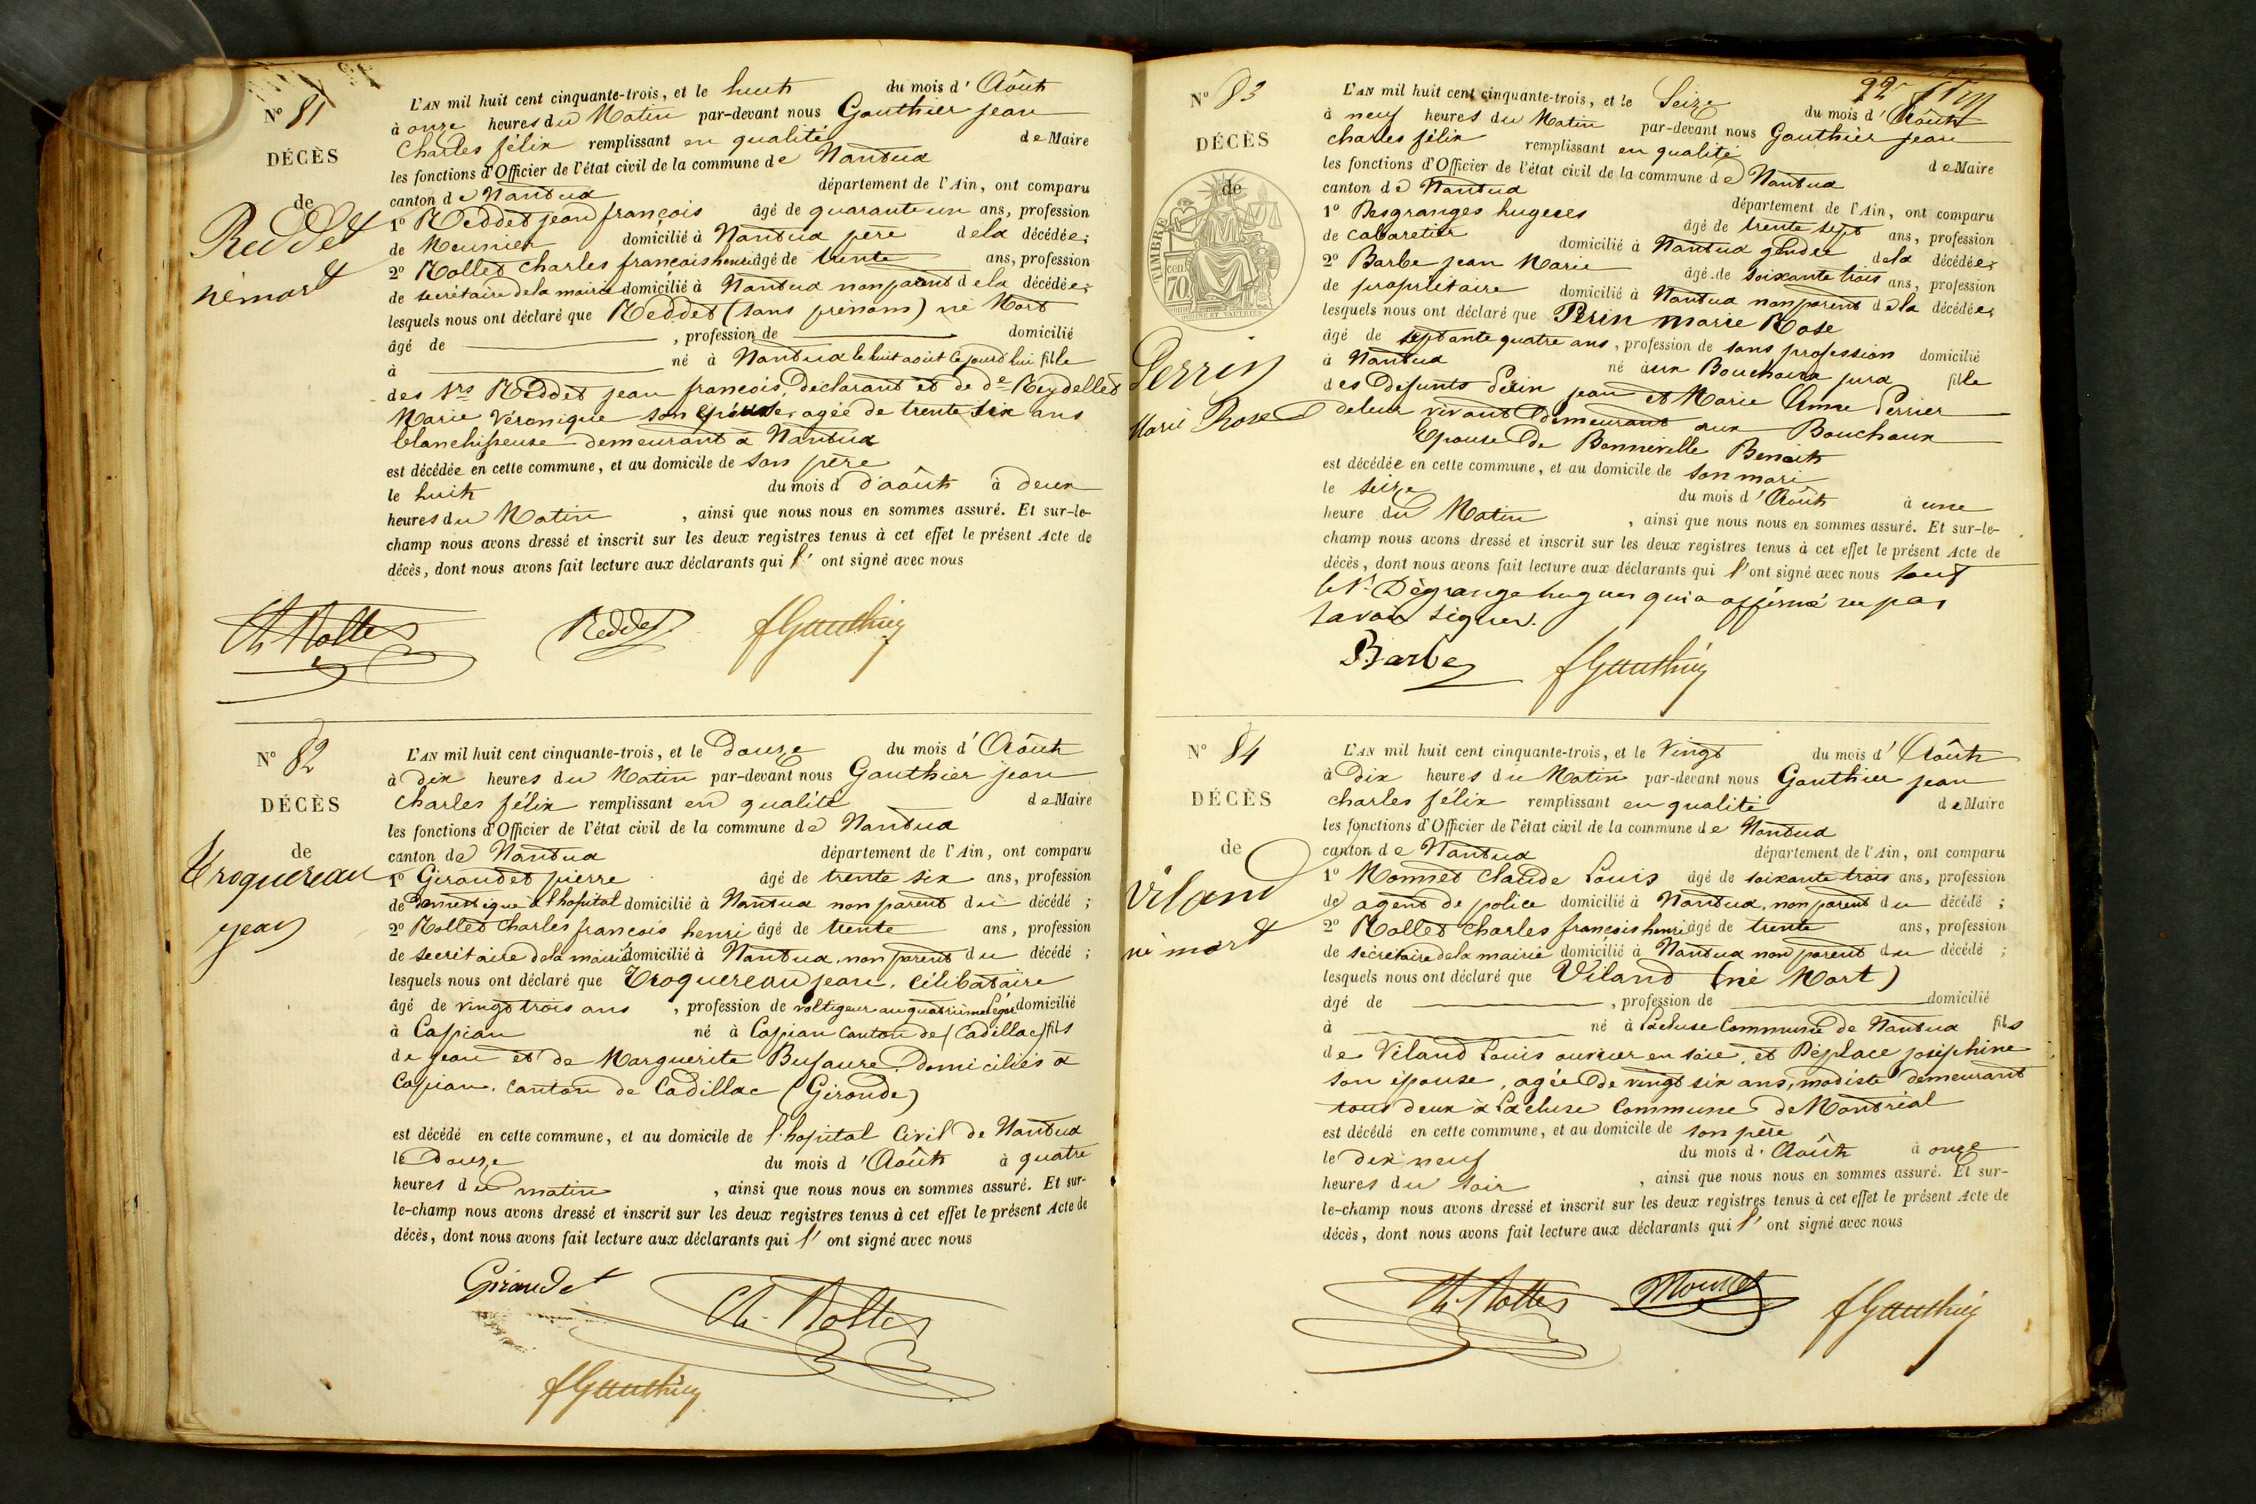 N° 81
DÉCÈS
de
Reddet
né mort
L'AN mil huit cent cinquante-trois, et le huit du mois d'Août
à onze heures du Matin par-devant nous Gauthier jean
charles félix remplissant en qualité de Maire
les fonctions d'Officier de l'état civil de la commune de Nantua
canton de Nantua département de l'Ain, ont comparu
1° Reddet jean françois âgé de quarante un ans, profession
de Meunier domicilié à Nantua père de la décédée;
2° Rollet Charles françois henri âgé de trente ans, profession
de secrétaire de la mairie domicilié à Nantua non parent de la décédée;
lesquels nous ont déclaré que Reddet (sans prénoms) né Mort
âgé de , profession de domicilié
à né à Nantua le huit août ce jourd'hui fille
des Srs Reddet jean françois, Déclarant et de de Reydellet
Marie Véronique son épouse, agée de trente six ans
blanchisseuse demeurant à Nantua
est décédée en cette commune, et au domicile de son père
le huit du mois d d'août à deux
heures du Matin , ainsi que nous nous en sommes assuré. Et sur-le-
champ nous avons dressé et inscrit sur les deux registres tenus à cet effet le présent Acte de
décès, dont nous avons fait lecture aux déclarants qui l' ont signé avec nous
Ch Rollet Reddet fGauthier
N° 82
DÉCÈS
de
Troquereau
jean
L'AN mil huit cent cinquante-trois, et le Douze du mois d'Août
à Dix heures du Matin par-devant nous Gauthier jean
Charles félix remplissant en qualité de Maire
les fonctions d'Officier de l'état civil de la commune de Nantua
canton de Nantua département de l'Ain, ont comparu
1° Giraudet pierre âgé de trente six ans, profession
de Domestique à l'hopital domicilié à Nantua non parent du décédé ;
2° Rollet Charles françois henri âgé de trente ans, profession
de secrétaire de la mairie domicilié à Nantua, non parent du décédé ;
lesquels nous ont déclaré que Troquereau jean, célibataire
âgé de vingt trois ans , profession de voltigeur au quatrième Léger domicilié
à Capian né à Capian Canton de (Cadillac) fils
de jean et de Marguerite Bufaure Domiciliés à
Capian, Canton de Cadillac (Gironde)
est décédé en cette commune, et au domicile de l'hopital Civil de Nantua
le Douze du mois d'Août à quatre
heures du matin , ainsi que nous nous en sommes assuré. Et sur-
le-champ nous avons dressé et inscrit sur les deux registres tenus à cet effet le présent Acte de
décès, dont nous avons fait lecture aux déclarants qui l' ont signé avec nous
Giraudet Ch. Rollet
fGauthier
22
N° 83
DÉCÈS
de
TIMBRE
70 cen
Perrin
Marie Rose
L'AN mil huit cent cinquante-trois, et le Seize du mois d'Août
à neuf heures du Matin par-devant nous Gauthier jean
charles félix remplissant en qualité de Maire
les fonctions d'Officier de l'état civil de la commune de Nantua
canton de Nantua département de l'Ain, ont comparu
1° Desgranges hugues âgé de trente sept ans, profession
de cabaretier domicilié à Nantua gendre de la décédée;
2° Barbe jean Marie âgé de soixante trois ans, profession
de propriétaire domicilié à Nantua non parent de la décédée;
lesquels nous ont déclaré que Perin Marie Rose
âgé de septante quatre ans, profession de sans profession domicilié
à Nantua né aux Bouchoux jura fille
des Defunts Perin jean et Marie Anne Perrier
de leur vivant Demeurant aux Bouchoux
Epouse De Bonneville Benoit
est décédée en cette commune, et au domicile de son mari
le seize du mois d'Août à une
heure du Matin , ainsi que nous nous en sommes assuré. Et sur-le-
champ nous avons dressé et inscrit sur les deux registres tenus à cet effet le présent Acte de
décès, dont nous avons fait lecture aux déclarants qui l' ont signé avec nous sauf
le Sr Dégrange hugues qui a affirmé ne pas
savoir signer.
Barbe fGauthier
N° 84
DÉCÈS
de
Viland
né mort
L'AN mil huit cent cinquante-trois, et le Vingt du mois d'Août
à Dix heures du Matin par-devant nous Gauthier jean
charles félix remplissant en qualité de Maire
les fonctions d'Officier de l'état civil de la commune de Nantua
canton de Nantua département de l'Ain, ont comparu
1° Monnet Claude Louis âgé de soixante trois ans, profession
de agent de police domicilié à Nantua, non parent du décédé ;
2° Rollet Charles françois henri âgé de trente ans, profession
de sécrétaire de la mairie domicilié à Nantua non parent du décédé ;
lesquels nous ont déclaré que Viland (né Mort)
âgé de , profession de domicilié
à né à Lacluse Commune de Nantua fils
de Viland Louis ouvrier en soie, et Déplace joséphine
son épouse, agée De vingt six ans, modiste demeurant
tous deux à Lacluse Commune de Montréal
est décédé en cette commune, et au domicile de son père
le dix neuf du mois d'Août à onze
heures du soir , ainsi que nous nous en sommes assuré. Et sur-
le-champ nous avons dressé et inscrit sur les deux registres tenus à cet effet le présent Acte de
décès, dont nous avons fait lecture aux déclarants qui l' ont signé avec nous
Ch. Rollet Monnet fGauthier